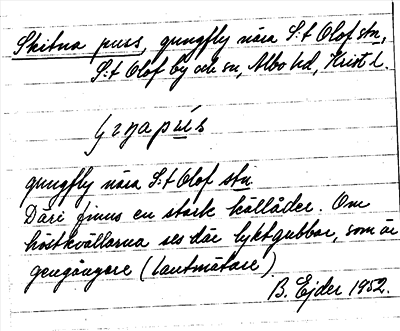 Skitna puss, gungfly nära S:t Olof stn,
S:t Olof by och sn, Albo hd, Krist l.
gungfly nära S:t Olof stn.
Däri finns en stark kallåder. Om
höstkvällarna ses där lyktgubbar, som är
gengångare (lantmätare).
B. Ejder 1952.